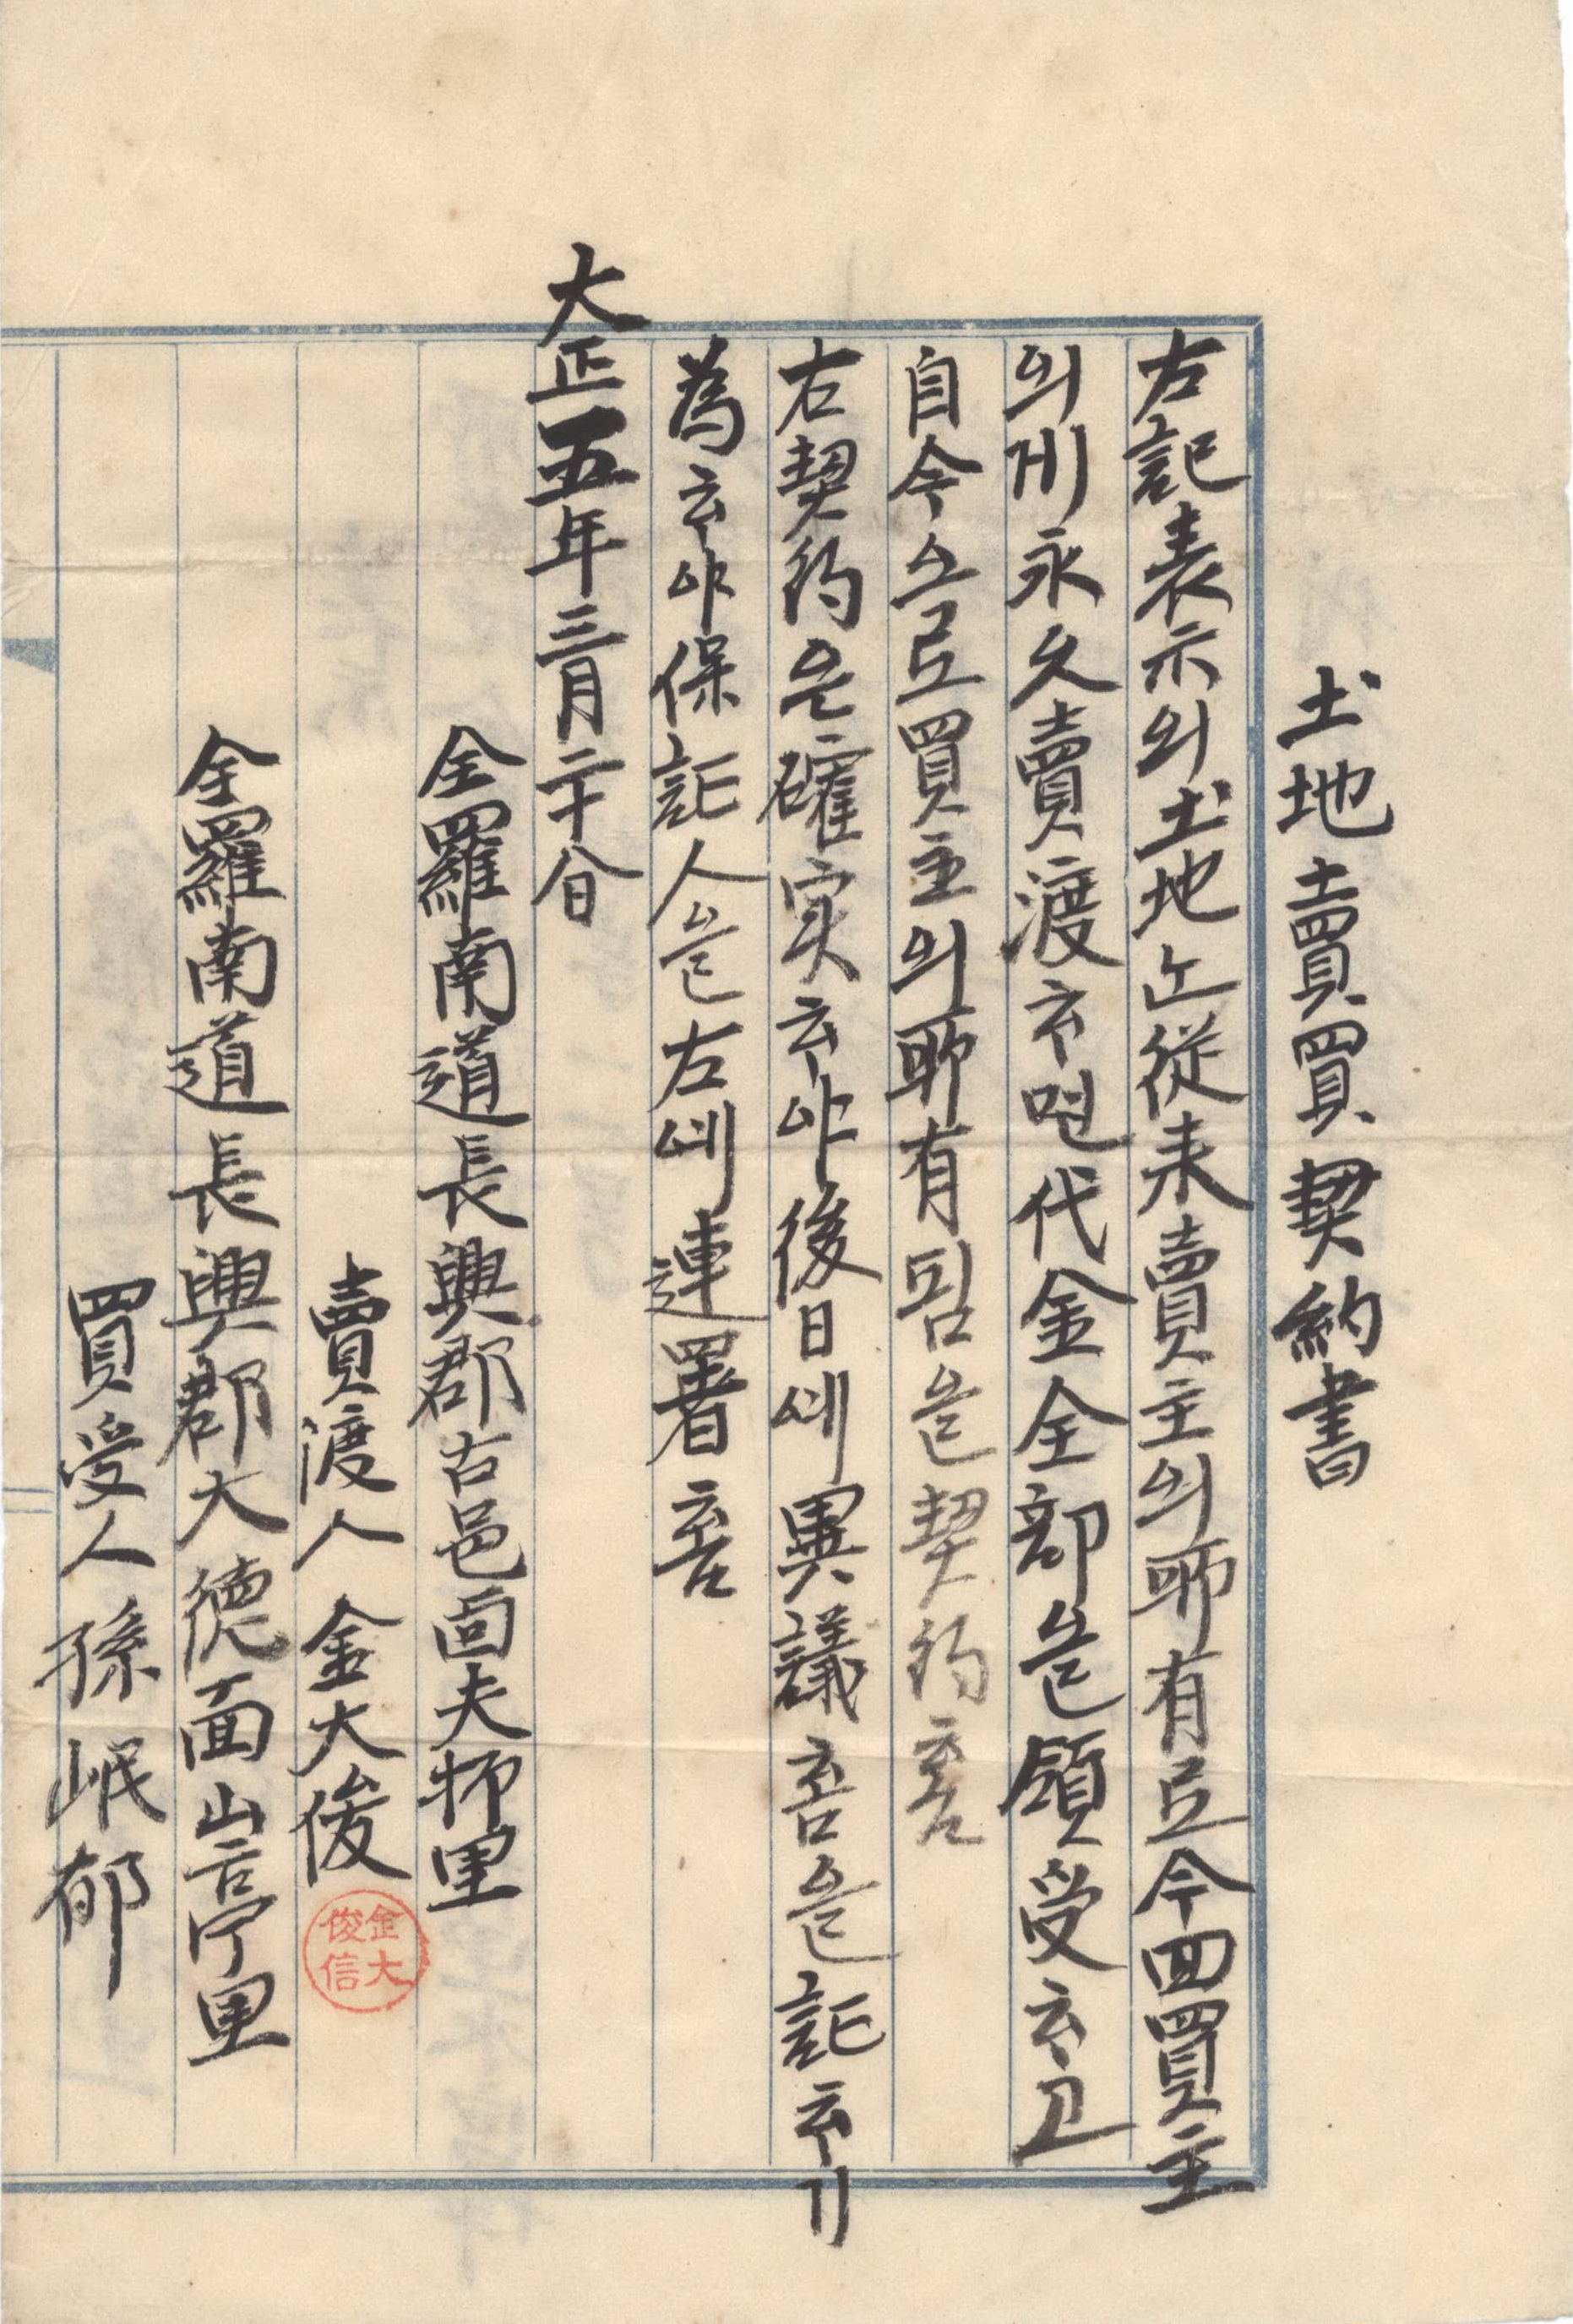 土地賣買契約書
右記表示의土地는從来賣主의所有로今回買主
의게永久賣渡ᄒᆞ면代金全部을領受ᄒᆞ고
自今으로買主의所有됨을契約홈
右契約은確実ᄒᆞ야後日에異議홈을証ᄒᆞ기
為ᄒᆞ야保証人을左에連署홈
大正五年三月二十八日
全羅南道長興郡古邑面夫抑里
賣渡人 金大俊
金大俊信
全羅南道長興郡大德面山亭里
買受人 孫岷郁